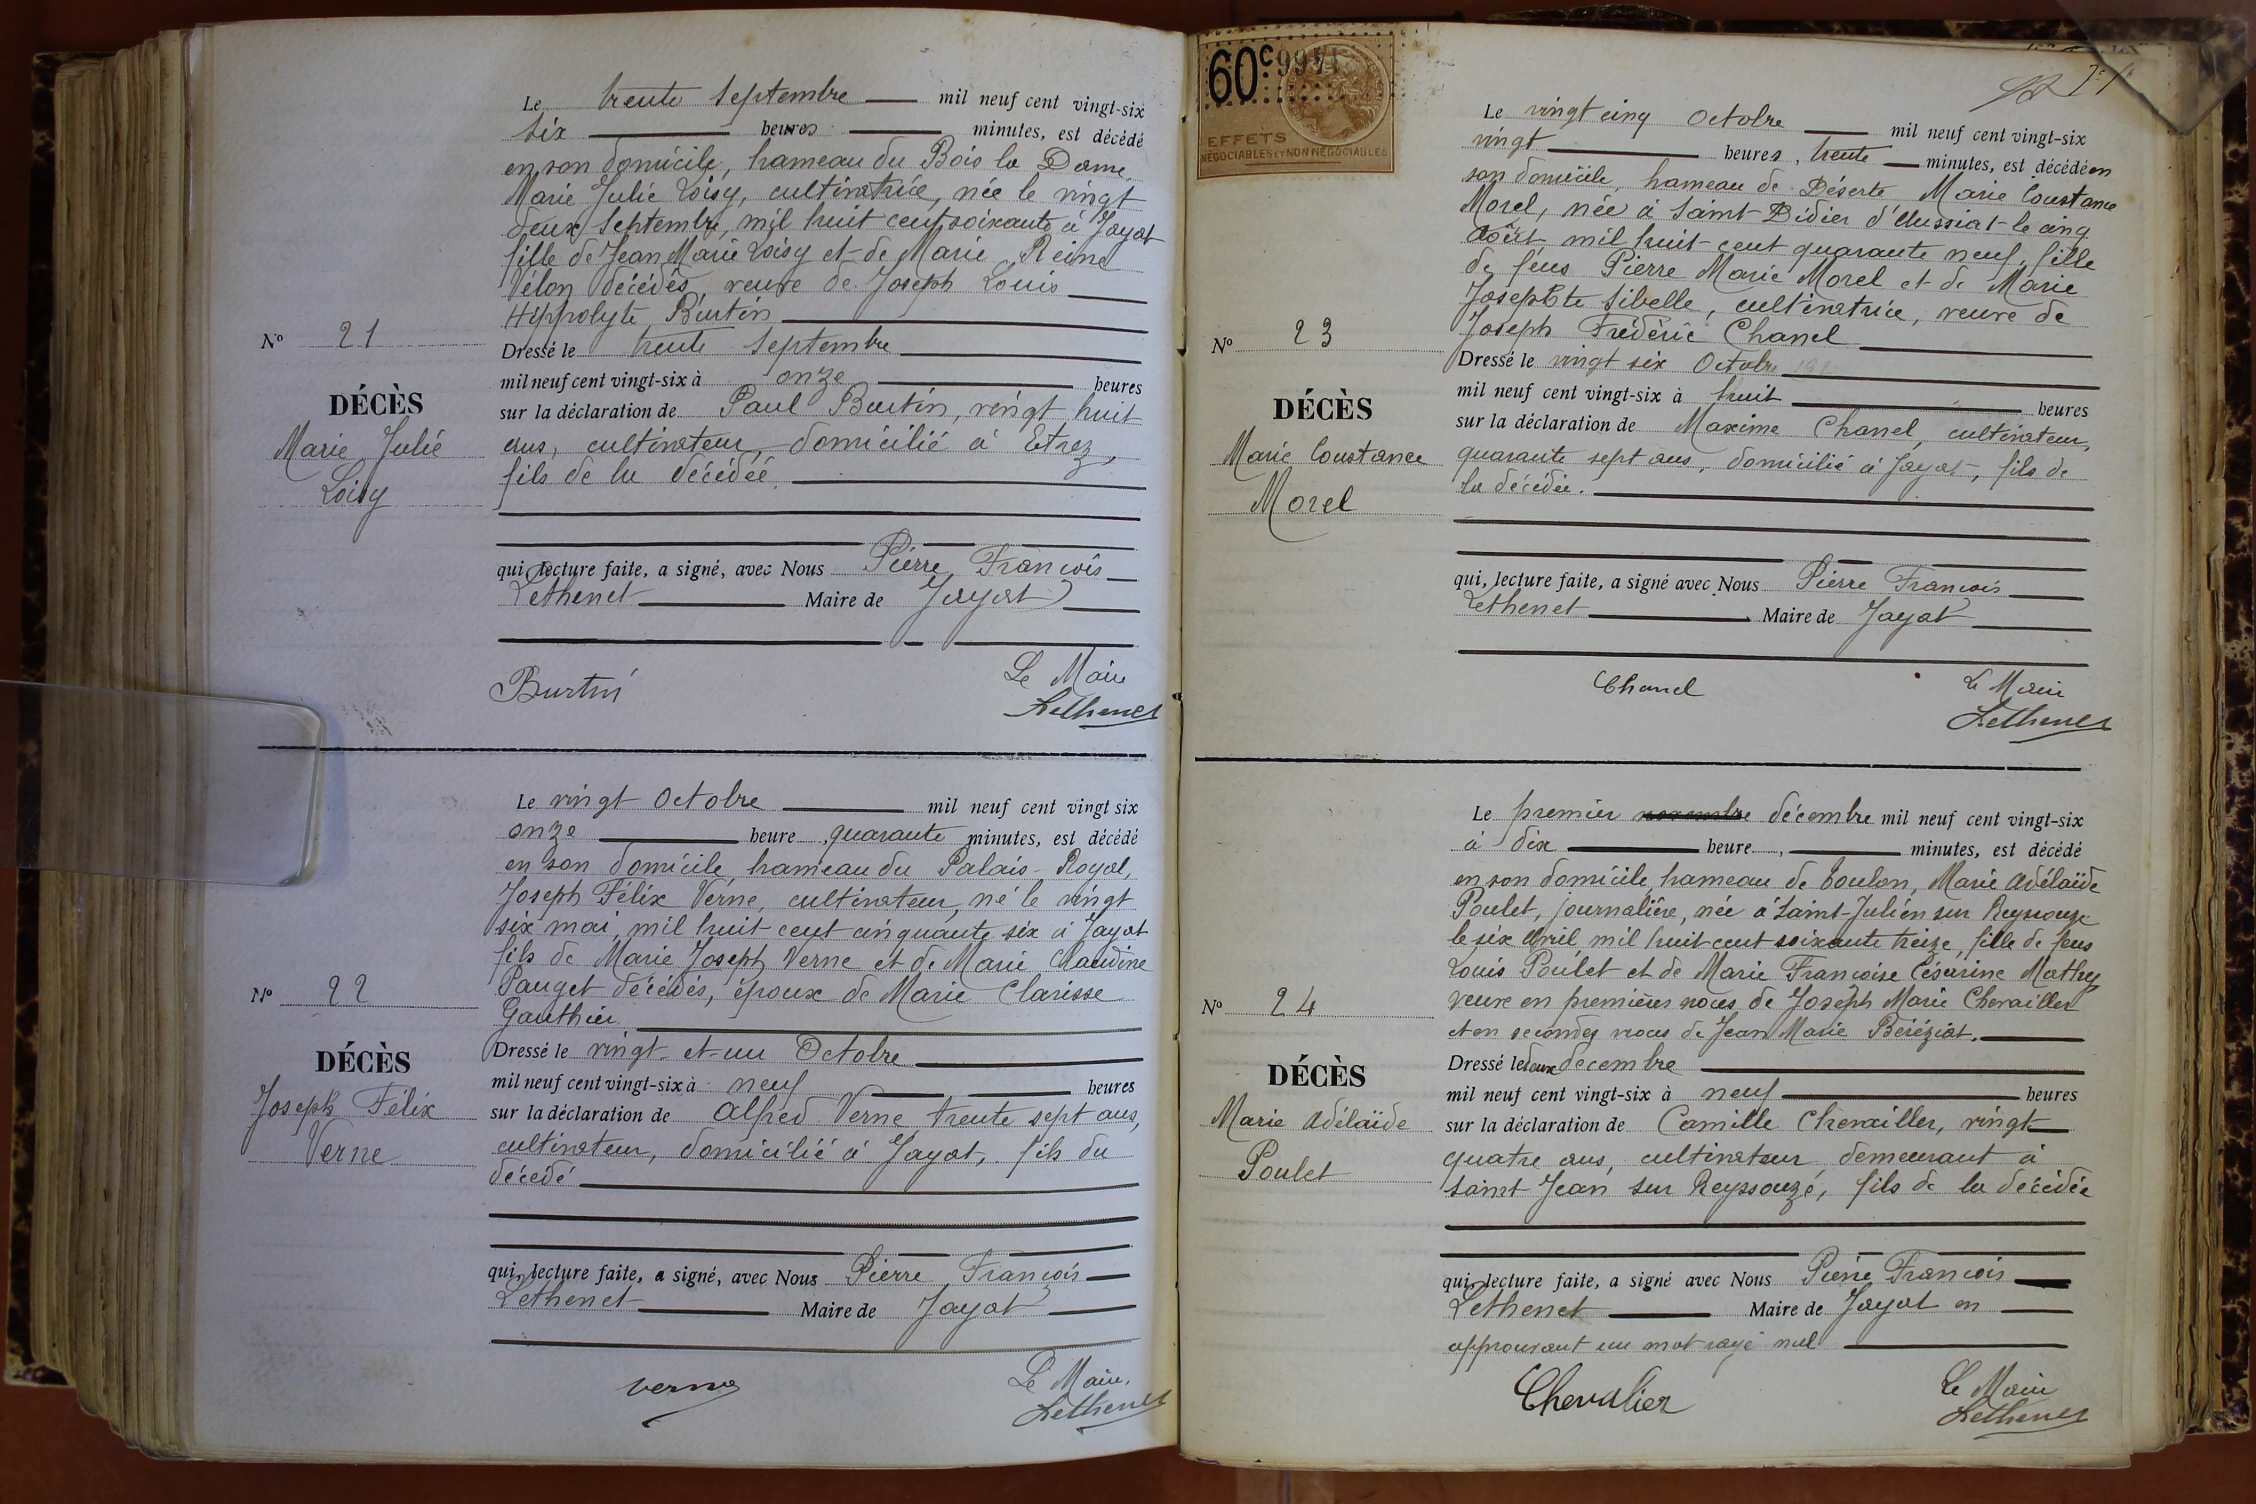 Le trente Septembre mil neuf cent vingt-six
six heures minutes, est décédé
en son domicile, hameau du Bois la Dame
Marie Julie Loisy, cultivatrice, née le vingt
deux Septembre, mil huit cent soixante à Jayat
fille de Jean Marie Loisy et de Marie Reine
Vélon décédés, veuve de Joseph Louis
Hippolyte Burtin
Nº 21
DÉCÈS
Marie Julie
Loisy
Dressé le trente Septembre
mil neuf cent vingt-six à onze heures
sur la déclaration de Paul Burtin, vingt huit
ans, cultivateur, domicilié à Etrez,
fils de la décédée.
qui, lecture faite, a signé, avec Nous Pierre François
Lethenet Maire de Jayat
Burtin
Le Maire
Lethenet
Le vingt Octobre mil neuf cent vingt six
onze heure, quarante minutes, est décédé
en son domicile, hameau du Palais-Royal,
Joseph Félix Verne, cultivateur, né le vingt
six mai, mil huit cent cinquante six à Jayat
fils de Marie Joseph Verne et de Marie Claudine
Pauget décédés, époux de Marie Clarisse
Gauthier.
Nº 22
DÉCÈS
Joseph Félix
Verne
Dressé le vingt-et-un Octobre
mil neuf cent vingt-six à neuf heures
sur la déclaration de Alfred Verne, trente sept ans,
cultivateur, domicilié à Jayat, fils du
décédé
qui, lecture faite, a signé, avec Nous Pierre François
Lethenet Maire de Jayat
Verne
Le Maire,
Lethenet
60c
EFFETS
NÉGOCIABLES ET NON NÉGOCIABLES
Le vingt cinq Octobre mil neuf cent vingt-six
vingt heures, trente minutes, est décédé en
son domicile, hameau de Déserte Marie Constance
Morel, née à Saint-Didier d'Aussiat le cinq
Août mil huit-cent quarante neuf, fille
de feus Pierre Marie Morel et de Marie
Josephte Sibelle, cultivatrice, veuve de
Joseph Frédéric Chanel
Nº 23
DÉCÈS
Marie Constance
Morel
Dressé le vingt six Octobre
mil neuf cent vingt-six à huit heures
sur la déclaration de Maxime Chanel, cultivateur,
quarante sept ans, domicilié à Jayat, fils de
la décédée.
qui, lecture faite, a signé avec Nous Pierre François
Lethenet Maire de Jayat
Chanel
Le Maire
Lethenet
Le premier novembre décembre mil neuf cent vingt-six
à dix heure, minutes, est décédé
en son domicile, hameau de Coulon, Marie Adélaïde
Poulet, journalière, née à Saint-Julien sur Reyssouze
le six Avril mil huit cent soixante treize, fille de feus
Louis Poulet et de Marie Françoise Césarine Mathy
veuve en premières noces de Joseph Marie Chevailler
et en secondes noces de Jean Marie Béréziat.
Nº 24
DÉCÈS
Marie Adélaïde
Poulet
Dressé le deux décembre
mil neuf cent vingt-six à neuf heures
sur la déclaration de Camille Chevailler, vingt
quatre ans, cultivateur, demeurant à
Saint Jean sur Reyssouze, fils de la décédée
qui, lecture faite, a signé avec Nous Pierre François
Lethenet Maire de Jayat en
approuvant un mot rayé nul
Chevalier
Le Maire
Lethenet